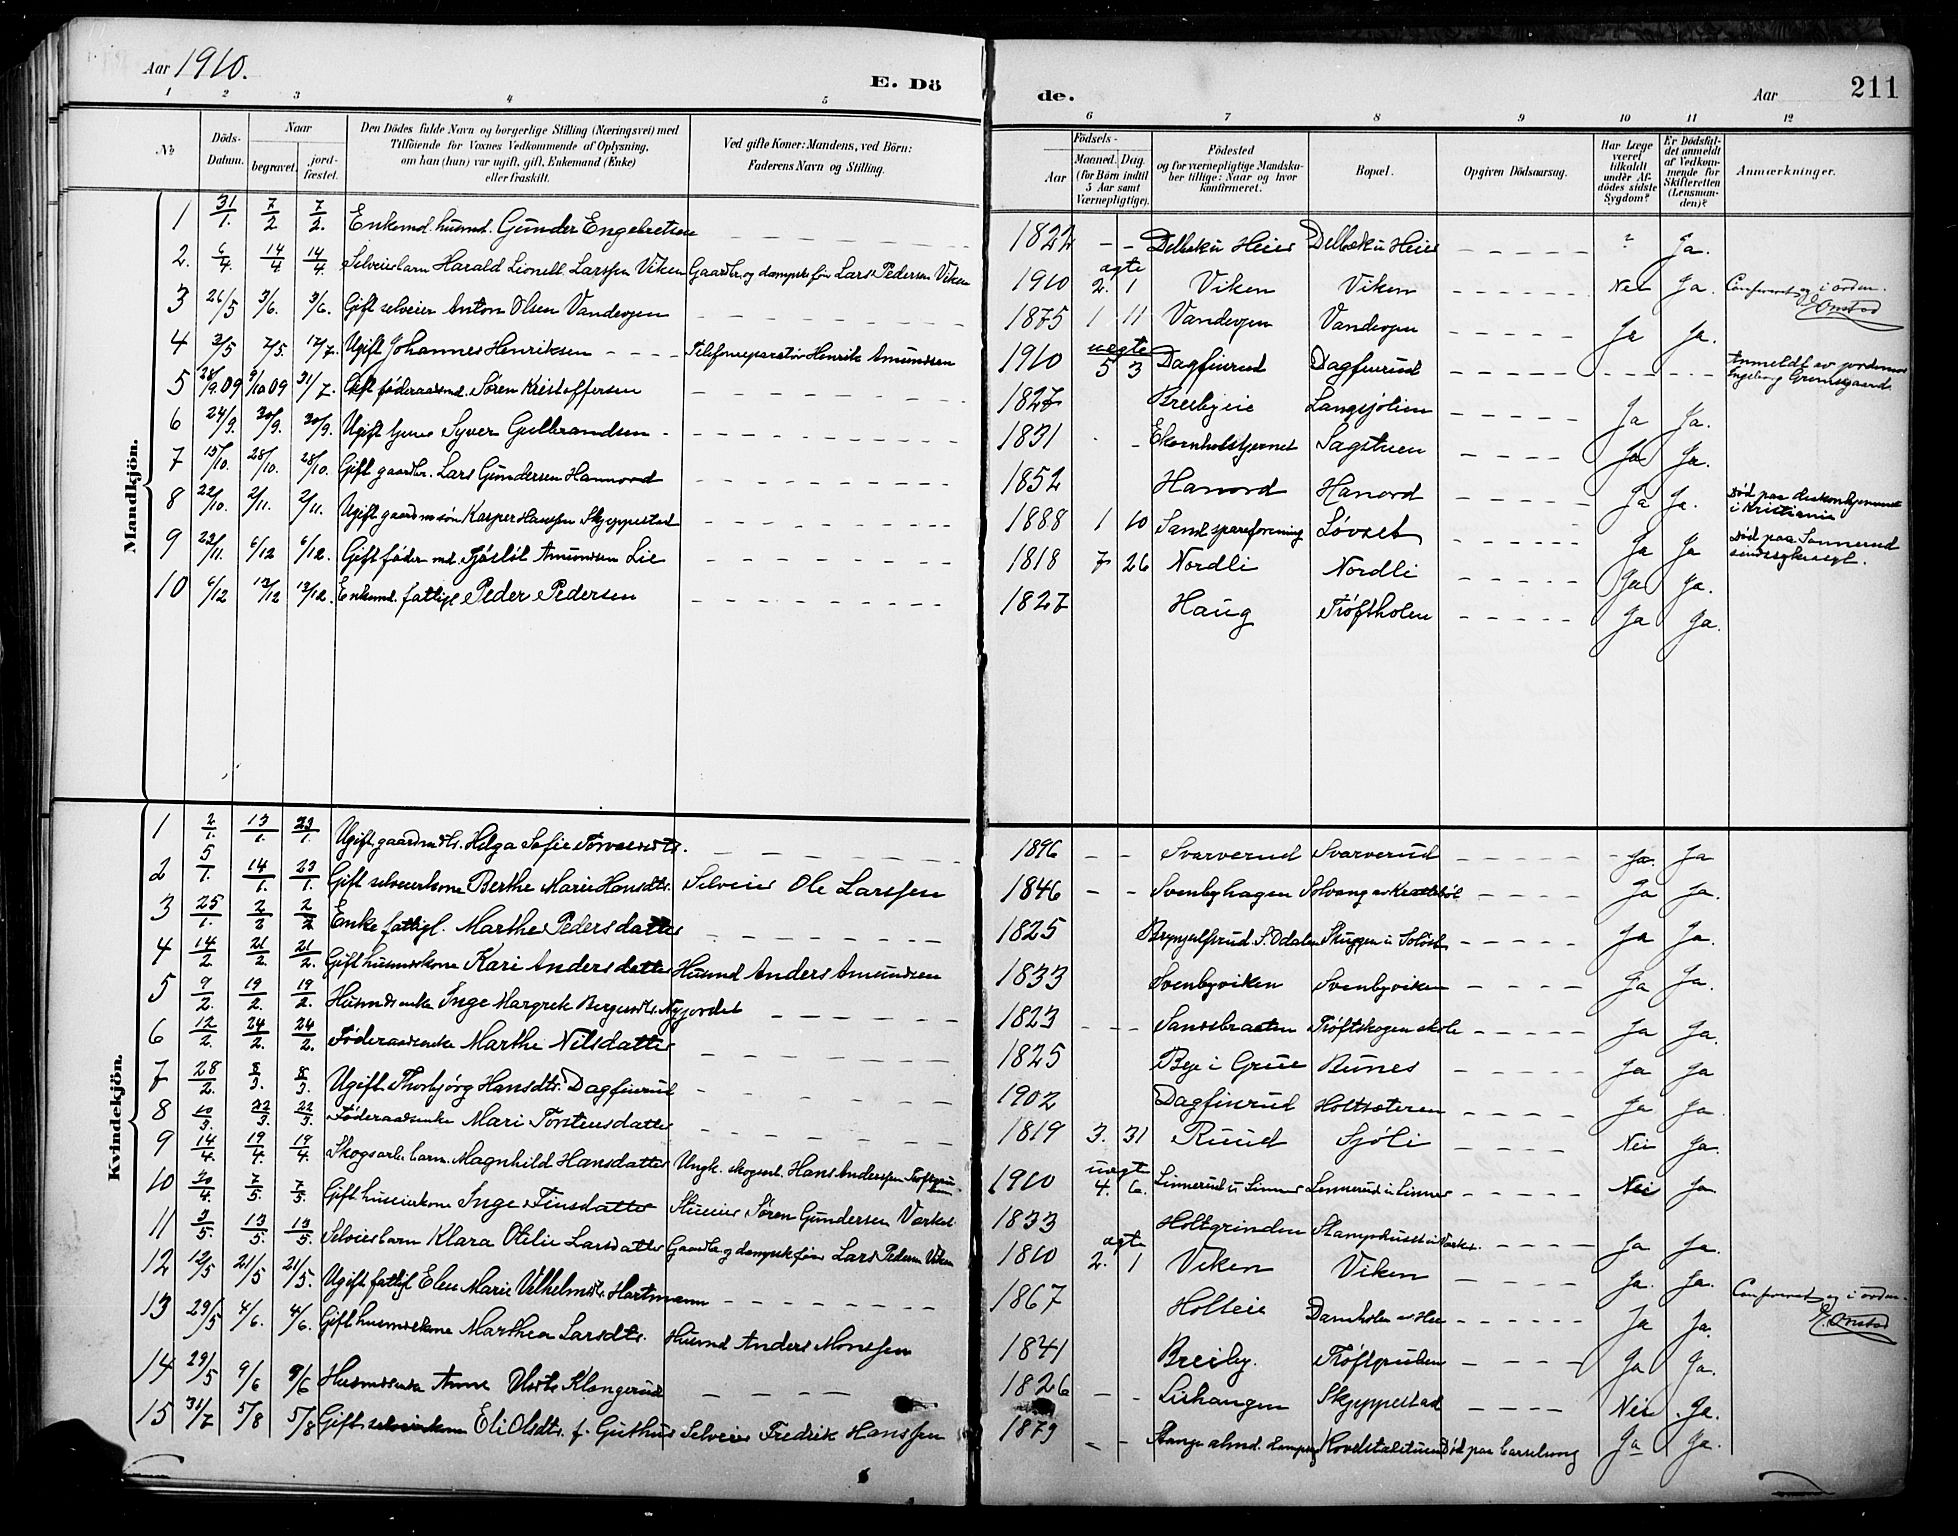 Aar 1910.
E. Dö
de.
Aar
211
1 2 3 4 5
6 7 8 9 10 11 12
No
Döds-Datum.
Naar
begravet.
jord-fæstet.
Den Dödes fulde Navn og borgerlige Stilling (Næringsvei) med
Tilföiende for Voxnes Vedkommende af Oplysning,
om han (hun) var ugift, gift, Enkemand (Enke)
eller fraskilt.
Ved gifte Koner: Mandens, ved Börn:
Faderens Navn og Stilling.
Födsels-
Aar
Maaned. Dag.
(for Börn indtil
5 Aar samt
Værnepligtige).
Födested
og for værnepligtige Mandska-
ber tillige: Naar og hvor
konfirmeret.
Bopæl.
Opgiven Dödsaarsag.
Har Læge
været
tilkaldt
under Af-
dödes sidste
Sygdom?
Er Dödsfal-
det anmeldt
af Vedkom-
mende for
Skifteretten
(Lensman-
den)?
Anmærkninger.
Mandkjön.
1 31/1. 7/2 7/2. Enkemd. husmd. Gunder Engebretsen 1822 - - Delbæk u Heier Delbæk u Heier ? Ja.
2. 6/4. 14/4 14/4. Selveierbarn Harald Lionell Larssen Viken Gaardbr. og dampskfør Lars Pedersen Viken 1910 ægte 2. 1 Viken Viken Nei Ja. Confereret og i orden. Onstad
3 26/5 3/6. 3/6. Gift selveier Anton Olsen Vandvogen 1875 1 11 Vandvogen Vandvogen Ja Ja.
4 2/5 7/5. 17/7. Ugift Johannes Henriksen Telefonreparatør Henrik Amundsen 1910 uægte 5 3 Dagfinrud Dagfinrud Anmeldt av jordemor Ingeborg Grimsgaard
5 28/9.09 9/10 09 31/7. Gift føderaadsmd. Søren Kristoffersen 1827 Breibyeie Langsjølien Ja Ja.
6 24/9. 30/9. 30/9. Ugift tjener Syver Gulbrandsen 1831 Ekornholstjernet Sagstuen Ja Ja.
7 15/10. 28/10. 28/10. Gift gaardbr. Lars Gundersen Hannord 1852 Hanord Hanord Ja Ja. Død paa diakonhjemmet i Kristiania
8 22/10. 2/11. 2/11. Ugift gaardmsøn Kasper Hanssen Skjeppestad 1888 1 10 Sand spareforening Løvset Ja Ja Død paa Sannerud sindssykeasyl.
9 22/11. 6/12 6/12. Gift føder. md. Tjøsløl Amundsen Lie 1818 7 26 Nordli Nordli Ja Ja.
10 6/12 13/12 13/12. Enkemd. fattigl. Peder Pedersen 1827 Haug Trøftholen Ja Ja.
Kvindekjön.
1 2/1. 13/1. 23/1. Ugift gaardmdtr. Helga Sofie Torvaldsdtr. 1896 - - Svarverud Svarverud Ja. Ja
2 5/1. 14/1. 23/1. Gift selveierkone Berthe Marie Hansdtr. Selveier Ole Larssen 1846 - - Svenbyhagen Solvang av Krattebøl Ja Ja.
3 25/1. 2/2 2/2 Enke fattigl. Marthe Pedersdatter 1825 Brynjulfsrud S. Odalen Skuggen i Soløst Ja Ja.
4 14/2 21/2. 21/2. Gift husmdskone Kari Andersdatter Husmd Anders Amundsen 1833 Svenbyviken Svenbyviken Ja Ja.
5 9/2. 19/2. 19/2. Husmdsenke Inge Margrete Bergersdtr. Nyjordet 1823 - - - Sandsbraaten Trøftskogen skole Ja Ja.
6 12/2. 24/2. 24/2. Føderaadsenke Marthe Nilsdatter 1825 Bye i Grue Bunes Ja Ja
7 28/2. 8/3. 8/3. Ugift Thorbjørg Hansdtr. Dagfinrud 1902 Dagfinrud Holtsæteren Ja Ja
8 10/3. 22/3. 22/3. Føderaadsenke Mari Torstensdatter 1819 3. 31 Ruud Sjøli Nei Ja.
9 14/4. 19/4. 19/4. Skogsarb. barn. Magnhild Hansdatter Ungk. skogsarb. Hans Anderssen 1910 uægte 4. 6. Linnerud u Linner Linnerud u Linner Nei Ja
10 30/4 7/5. 7/5. Gift huseierkone Inge Finsdatter Huseier Søren Gundersen 1833 Holtgrinden Ja Ja.
11 3/5. 13/5. 13/5. Selveierbarn Klara Otilie Larsdatter Gaardbr. og dampskfører Lars Pedersen Viken 1810 ægte 2. 1 Viken Viken Ja. Ja. Confereret og i orden. Onstad
12 12/5 21/5 21/5. Ugift fattigl Elen Marie Vilhelmsdtr. Hartmann 1867 Holteie Ja Ja.
13 29/5 4/6. 4/6. Gift husmdskone Marthea Larsdtr. Husmd Anders Monssen 1841 Breiby. Ja Ja.
14 29/5 9/6 9/6 Husmdsenke Anne Olsdtr Klongerud 1826 - - Lishangen Skjeppestad Nei Ja.
15 31/7 5/8 5/8 Gift selveierkone Eli Olsdtr. f. Guthus Selveier Fredrik Hanssen 1879 - - Stange alm. Død paa barselseng Ja Ja.